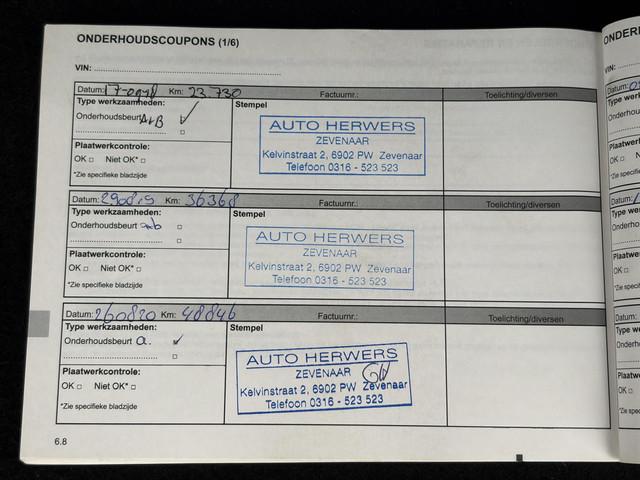 ONDERHOUDSCOUPONS (1/6)
VIN:
Datum: 17-0918 Km: 23.730 Factuurnr.: Toelichting/diversen
Type werkzaamheden: Stempel
Onderhoudsbeurt A+B ✓
Plaatwerkcontrole:
OK □ Niet OK* □
*Zie specifieke bladzijde
AUTO HERWERS
ZEVENAAR
Kelvinstraat 2, 6902 PW Zevenaar
Telefoon 0316 - 523 523
Datum: 290819 Km: 36368 Factuurnr.: Toelichting/diversen
Type werkzaamheden: Stempel
Onderhoudsbeurt a+b □
Plaatwerkcontrole:
OK □ Niet OK* □
*Zie specifieke bladzijde
AUTO HERWERS
ZEVENAAR
Kelvinstraat 2, 6902 PW Zevenaar
Telefoon 0316 - 523 523
Datum: 260820 Km: 48846 Factuurnr.: Toelichting/diversen
Type werkzaamheden: Stempel
Onderhoudsbeurt a. ✓
Plaatwerkcontrole:
OK □ Niet OK* □
*Zie specifieke bladzijde
AUTO HERWERS
ZEVENAAR
Kelvinstraat 2, 6902 PW Zevenaar
Telefoon 0316 - 523 523
6.8
VIN:
Datum: